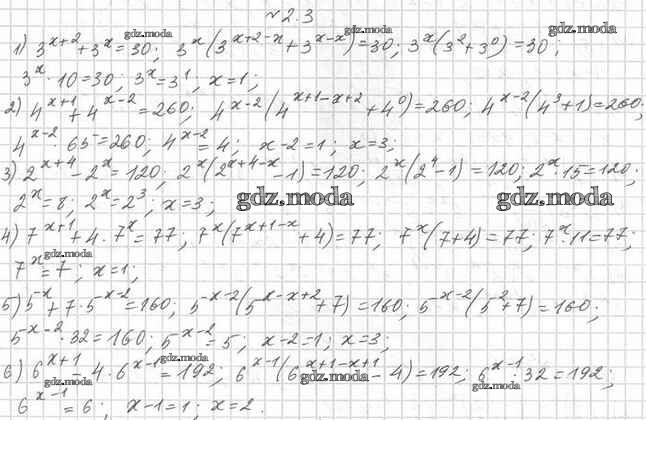 №2.3
gdz.moda gdz.moda
1) 3^{x+2}+3^x=30; 3^x(3^{x+2-x}+3^{x-x})=30; 3^x(3^2+3^0)=30;
3^x·10=30; 3^x=3^1; x=1;
2) 4^{x+1}+4^{x-2}=260; 4^{x-2}(4^{x+1-x+2}+4^0)=260; 4^{x-2}(4^3+1)=260;
4^{x-2}·65=260; 4^{x-2}=4; x-2=1; x=3;
3) 2^{x+4}-2^x=120; 2^x(2^{x+4-x}-1)=120; 2^x(2^4-1)=120; 2^x·15=120;
2^x=8; 2^x=2^3; x=3;
gdz.moda gdz.moda
4) 7^{x+1}+4·7^x=77; 7^x(7^{x+1-x}+4)=77; 7^x(7+4)=77; 7^x·11=77;
gdz.moda
7^x=7; x=1;
5) 5^{-x}+7·5^{-x-2}=160; 5^{-x-2}(5^{x-x+2}+7)=160; 5^{-x-2}(5^{-2}+7)=160;
5^{-x-2}·32=160; 5^{-x-2}=5; x-2=1; x=3;
gdz.moda
6) 6^{x+1}-4·6^{x-1}=192; 6^{x-1}(6^{x+1-x+1}-4)=192; 6^{x-1}·32=192;
gdz.moda gdz.moda gdz.moda
6^{x-1}=6; x-1=1; x=2.